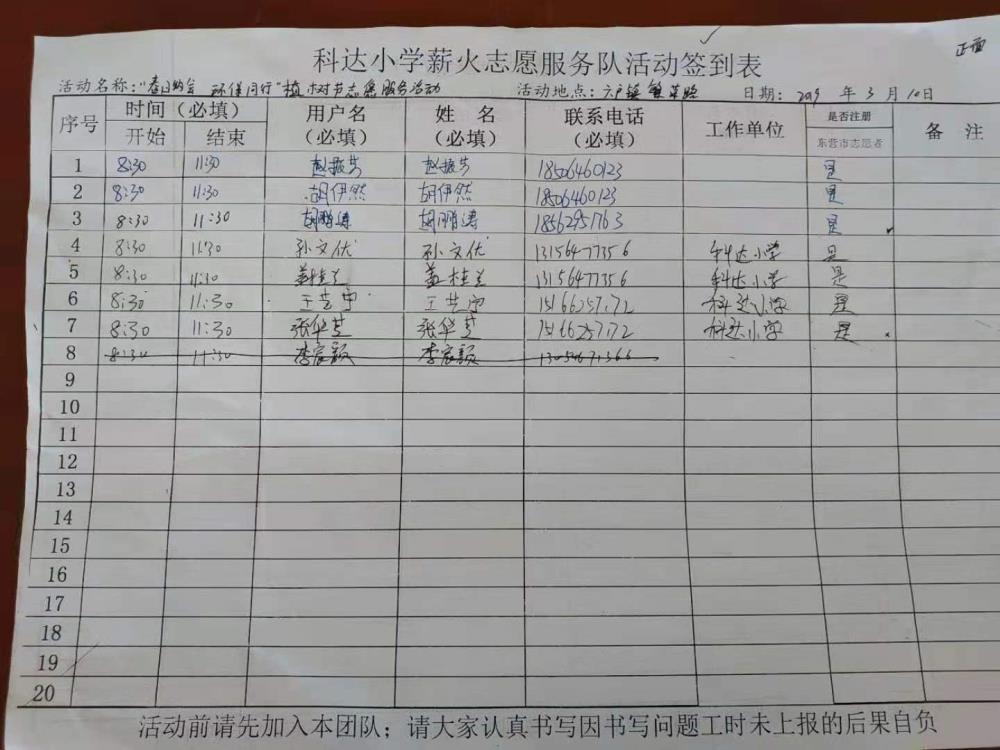 正面
科达小学薪火志愿服务队活动签到表
活动名称："春日约会 环保同行"植树节志愿服务活动 活动地点：六户镇 日期：2019 年 3 月 10日
序号 时间（必填） 用户名（必填） 姓 名（必填） 联系电话（必填） 工作单位 是否注册 备 注
开始 结束 东营市志愿者
1 8:30 11:30 赵振芳 赵振芳 18506460123 是
2 8:30 11:30 胡伊然 胡伊然 18506460123 是
3 8:30 11:30 胡鹏涛 胡鹏涛 18562951763 是
4 8:30 11:30 孙文优 孙文优 13156477356 科达小学 是
5 8:30 11:30 盖桂兰 盖桂兰 13156477356 科达小学 是
6 8:30 11:30 王艺宁 王艺宁 15166257172 科达小学 是
7 8:30 11:30 张华芝 张华芝 15166257172 科达小学 是
8 8:30 11:30 李宸颖 李宸颖
9
10
11
12
13
14
15
16
17
18
19
20
活动前请先加入本团队；请大家认真书写因书写问题工时未上报的后果自负